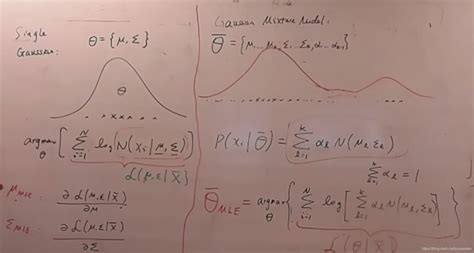 Single
Gaussian:
θ = {μ, Σ}
θ
argmax θ [ Σ_{i=1}^{N} log N(x_i | μ, Σ) ]
L(μ, Σ | X)
μ_MLE = ∂L(μ, Σ | X) / ∂μ
Σ_MLE = ∂L(μ, Σ | X) / ∂Σ
Gaussian Mixture Model:
θ = {μ_1 ... μ_k, Σ_1 ... Σ_k, α_1 ... α_{k-1}}
P(x_i | θ) = Σ_{l=1}^{k} α_l N(μ_l, Σ_l)
Σ_{l=1}^{k} α_l = 1
θ_MLE = argmax θ { Σ_{i=1}^{N} log [ Σ_{l=1}^{k} α_l N(μ_l, Σ_l) ] }
L(θ | X)